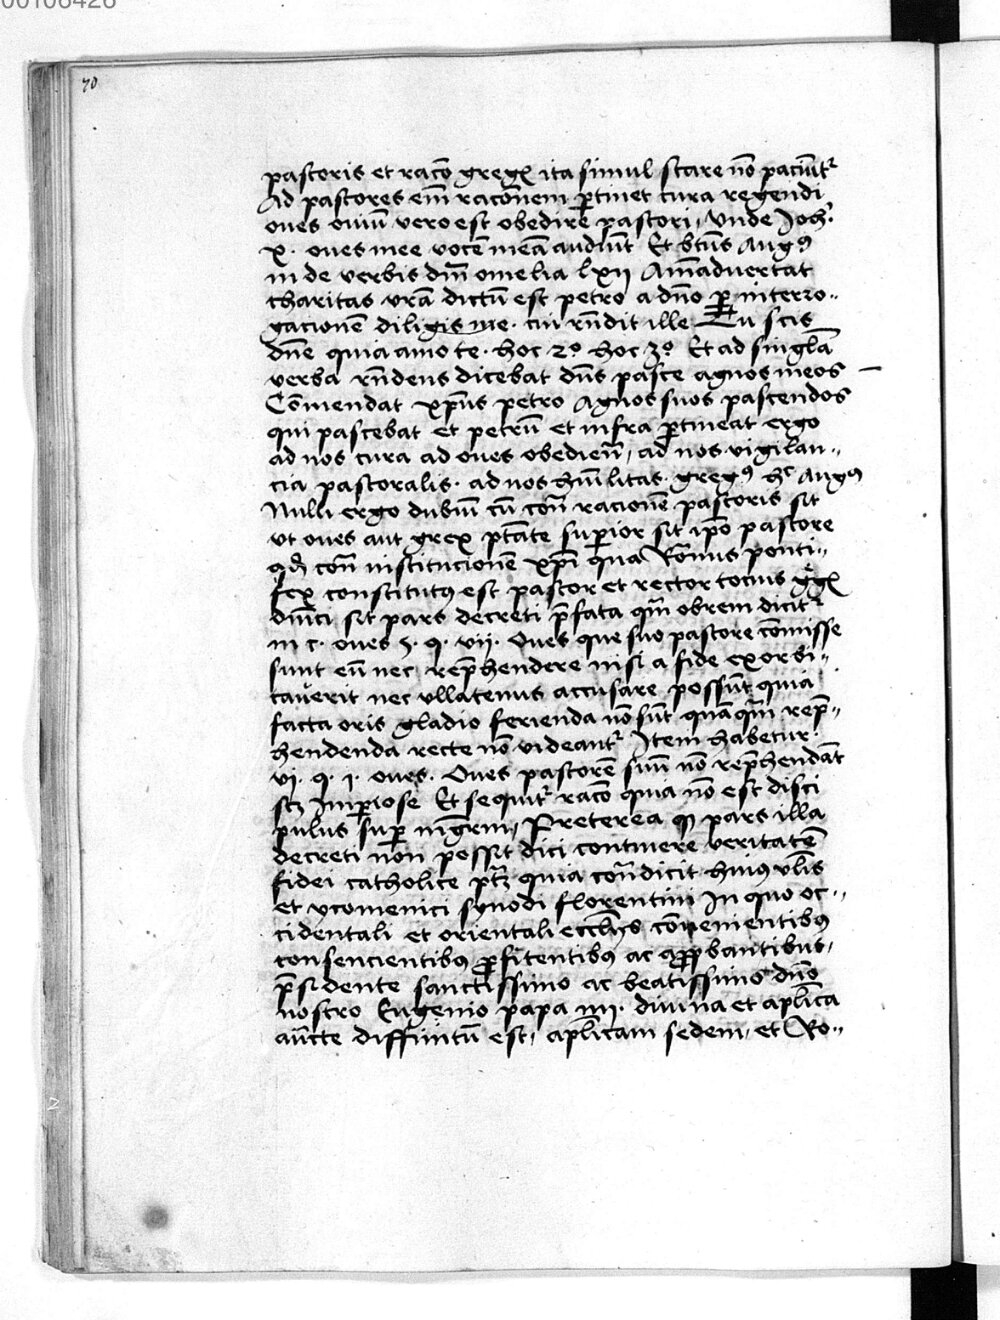 00106426
70
pastoris et racō gregꝭ ita simul stare nō paciūtᷣ
Ad pastores em̄ racōnem ꝑtinet cura regendi
oues ouiū vero est obedire pastori, vnde Joh̄.
x. oues mee vocē meā audiūt Et btūs Augꝰ
in de verbis dn̄i omelia lxij Am̄aduertat
charitas vrā dictū est petro a dn̄o ꝑ interro„
gacionē diligis me. cui rn̄dit ille Tu scis
dn̄e quia amo te. hoc 2º hoc 3º Et ad singl̄a
verba rn̄dens dicebat dn̄s pasce agnos meos —
Cōmendat xp̄us petro Agnos suos pascendos
qui pascebat et petrū et infra ꝑtineat ergo
ad nos cura ad oues obedien̄, ad nos vigilan„
cia pastoralis. ad nos hūilitas. gregꝰ hͨ Augꝰ
Nulli ergo dubiū cū con̄ racionē pastoris sit
vt oues aut grex ptāte suꝑior sit ip̄o pastore
qd̄ con̄ institucionē xp̄i qua Romnus ponti„
fex constitutꝰ est pastor et rector tocius ggꝭ
dn̄ici sit pars decreti p̄fata qm̄ obrem dicitᷣ
in c. oues 5. q. vii. Oues que suo pastore cōmisse
sunt eū nec rep̄hendere nisi a fide exorbi„
tauerit nec vllatenus accusare possūt quia
facta oris gladio ferienda nō sūt quāqm̄ rep̄„
hendenda recte nō videantᷣ Item habetur
vi. q. i. oues. Oues pastorē suū nō rep̄hendāt
scꝫ Imꝑiose Et sequitᷣ racō quia nō est disci
pulus suꝑ mgr̄m, Preterea ꝙ pars illa
decreti non possit dici continere veritatē
fidei catholice ptꝫ quia con̄dicit huiꝰ vl̄is
et ycomenici synodi florentini In quo oc„
cidentali et orientali eccl̄ijs cōuenientibꝰ
consencientibꝰ ꝓfitentibꝰ ac apꝓbantibus,
p̄sidente sanctissimo ac beatissimo dn̄o
nostro Eugenio papa iiii. diuina et apl̄ica
aūcte diffinitū est, apl̄icam sedem, et Ro„